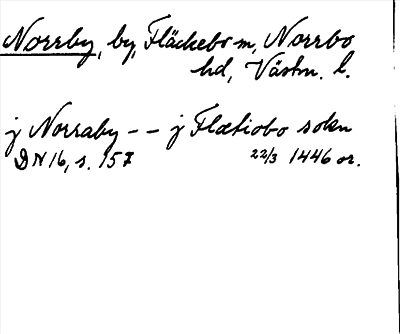 Norrby, by, Fläckebo sn, Norrbo
hd, Västm. l.
j Norraby -- j Flætiobo sokn
DN 16, s. 157 22/3 1446 or.